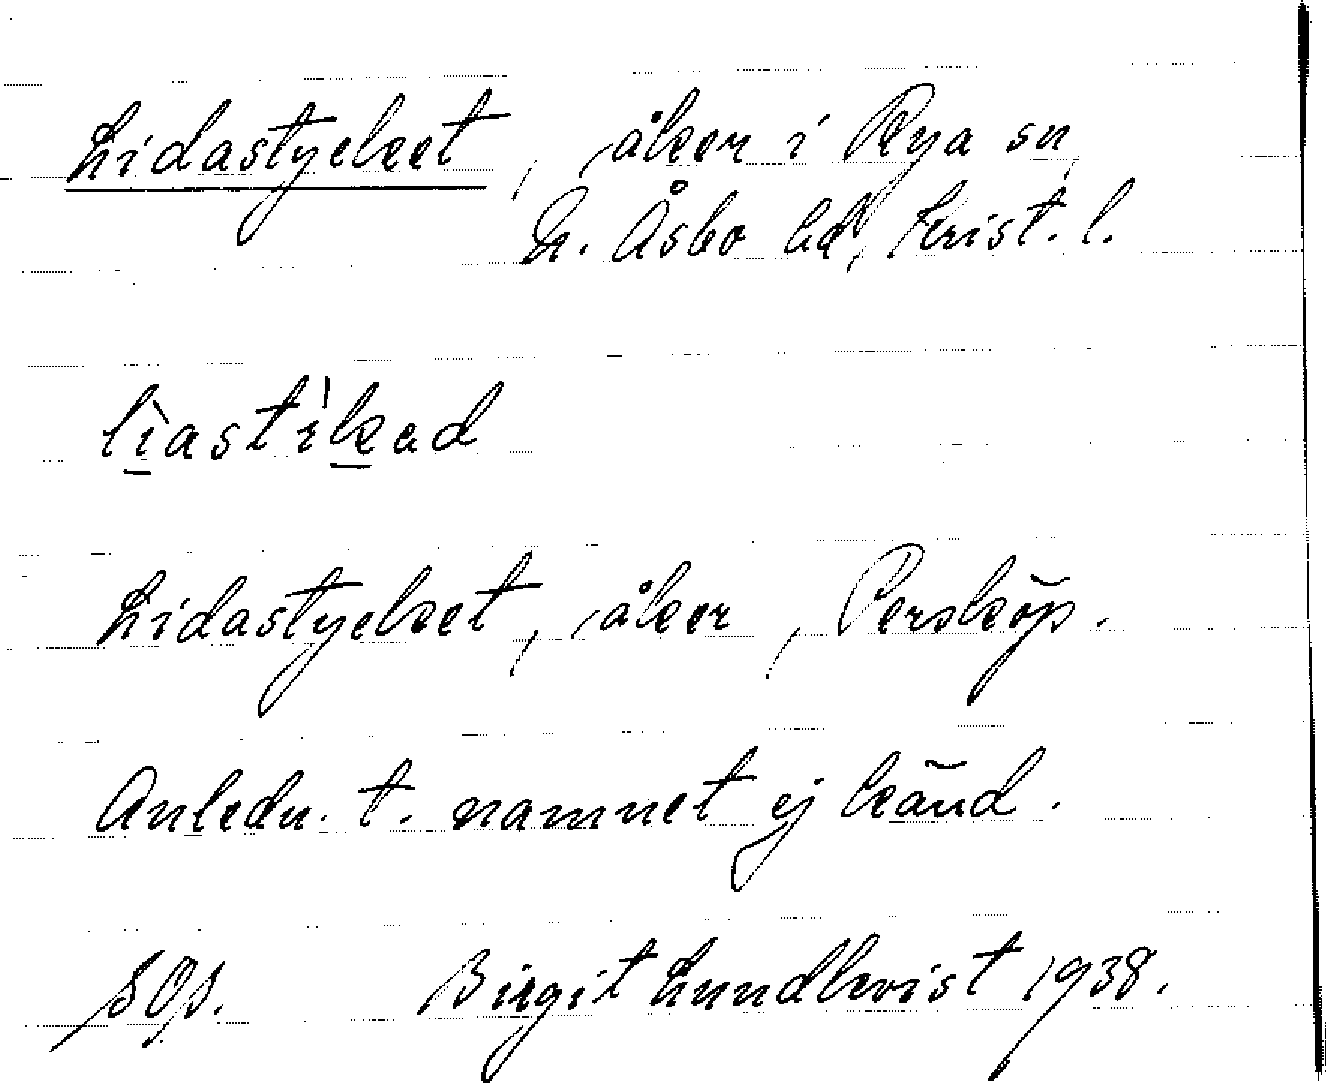 Lidastycket, åker i Rya sn,
N. Åsbo hd, Krist. l.
lìastìkad
Lidastycket, åker, Persköp.
Anledn. t. namnet ej känd.
Birgit Lundkvist 1938.